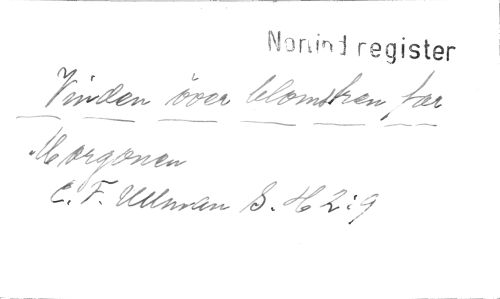 Norlind register
Vinden över blomstren far
Morgonen
C. F. Ullman S. H 2:9